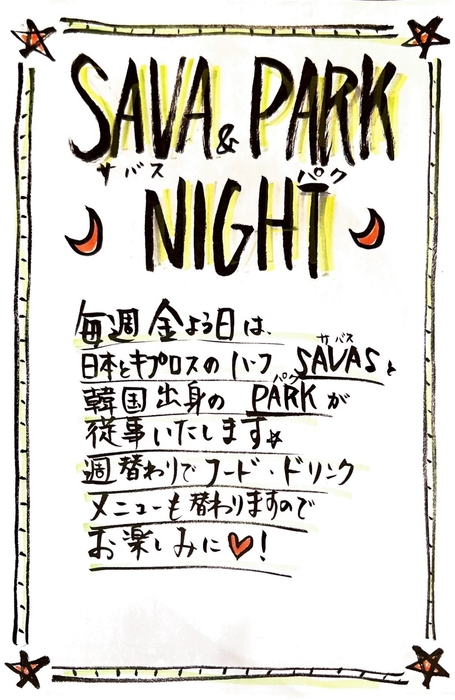 SAVA & PARK
サバス
パク
NIGHT
毎週金よう日は、
サバス
日本とキプロスのハーフ SAVASと
パク
韓国出身の PARKが
従事いたします☆
週替わりでフード・ドリンク
メニューも替わりますので
お楽しみに♥!